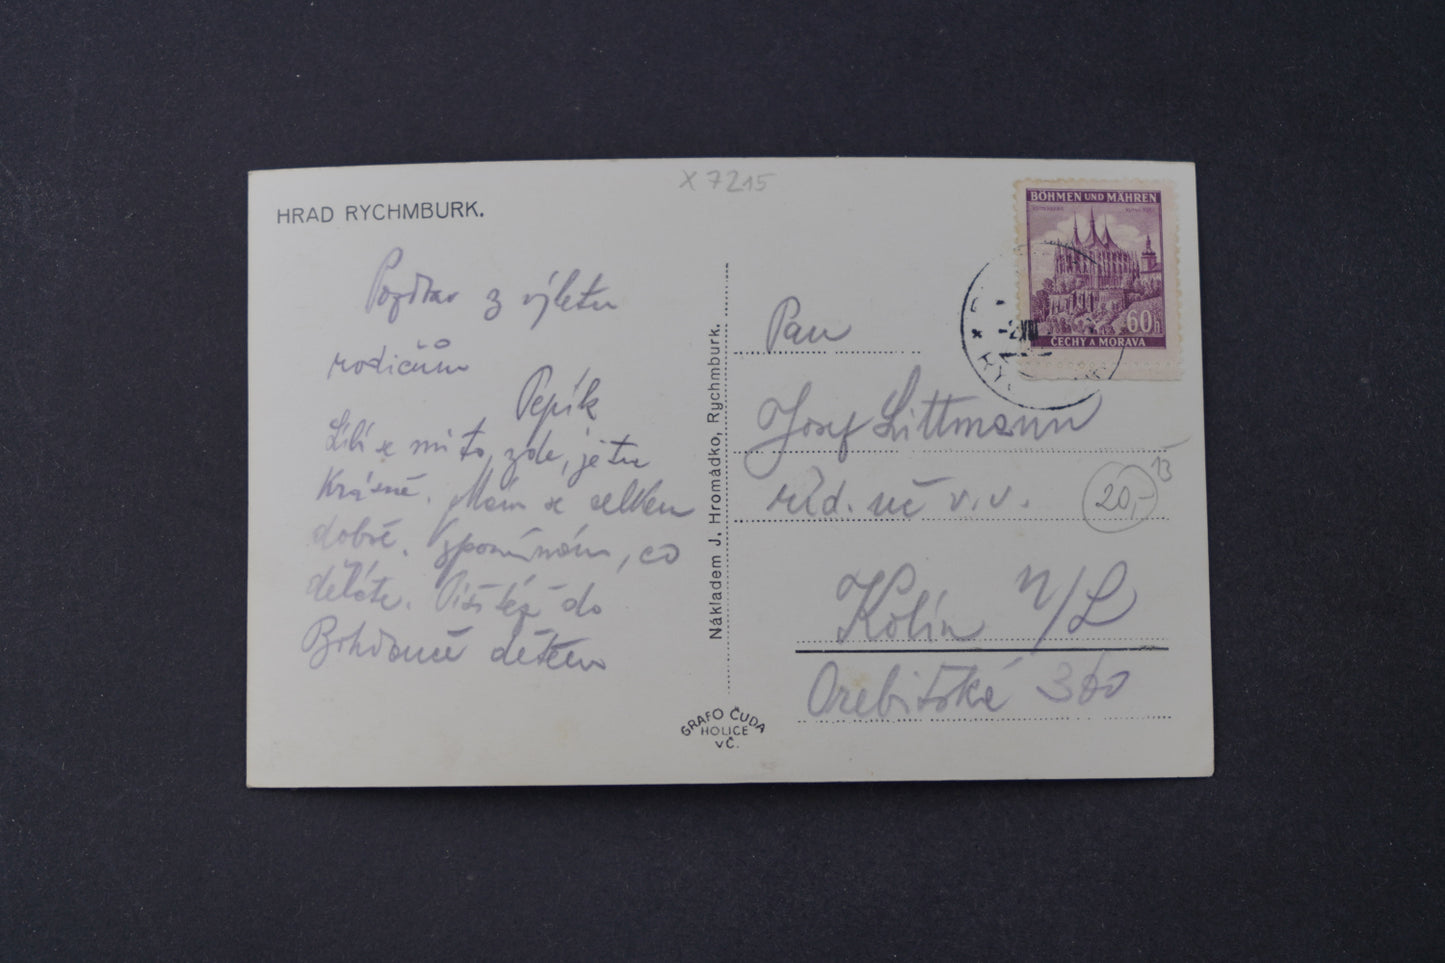 X 7215
HRAD RYCHMBURK.
Pozdrav z výletu
rodičům
Pepík
Líbí se mi to, zde, je tu
krásně. Mám se celkem
dobře. Vzpomínám, co
děláte. Píši též do
Bohdanče dětem
Nákladem J. Hromádko, Rychmburk.
GRAFO ČUDA
HOLICE
VČ.
BÖHMEN UND MÄHREN
60h
ČECHY A MORAVA
-2.VIII
Pan
Josef Littmann
říd. uč v.v.
20,-
13
Kolín n/L
Orebitská 360